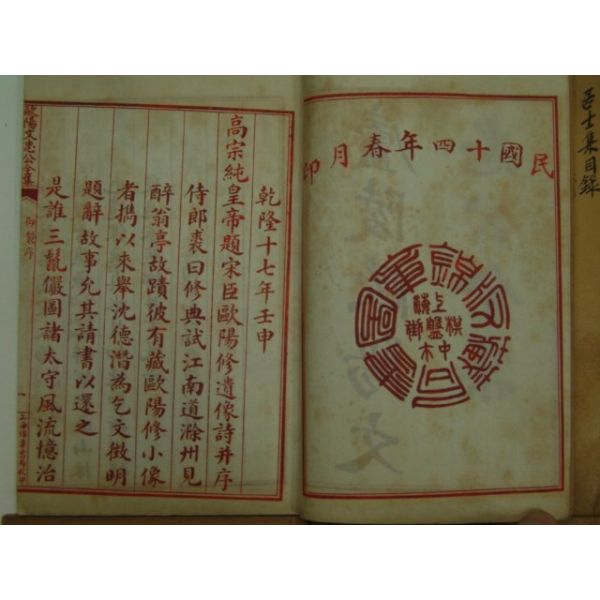 居士集目錄
民國十四年春月印
錦章圖書局
上海
棋盤街
中市
乾隆十七年壬申
高宗純皇帝題宋臣歐陽修遺像詩并序
侍郎裘曰修典試江南道滁州見
醉翁亭故蹟彼有藏歐陽修小像
者攜以來舉沈德潛為乞文徵明
題辭故事允其請書以還之
是誰三鬣儼圖諸太守風流憶治
歐陽文忠公全集
御製序
一